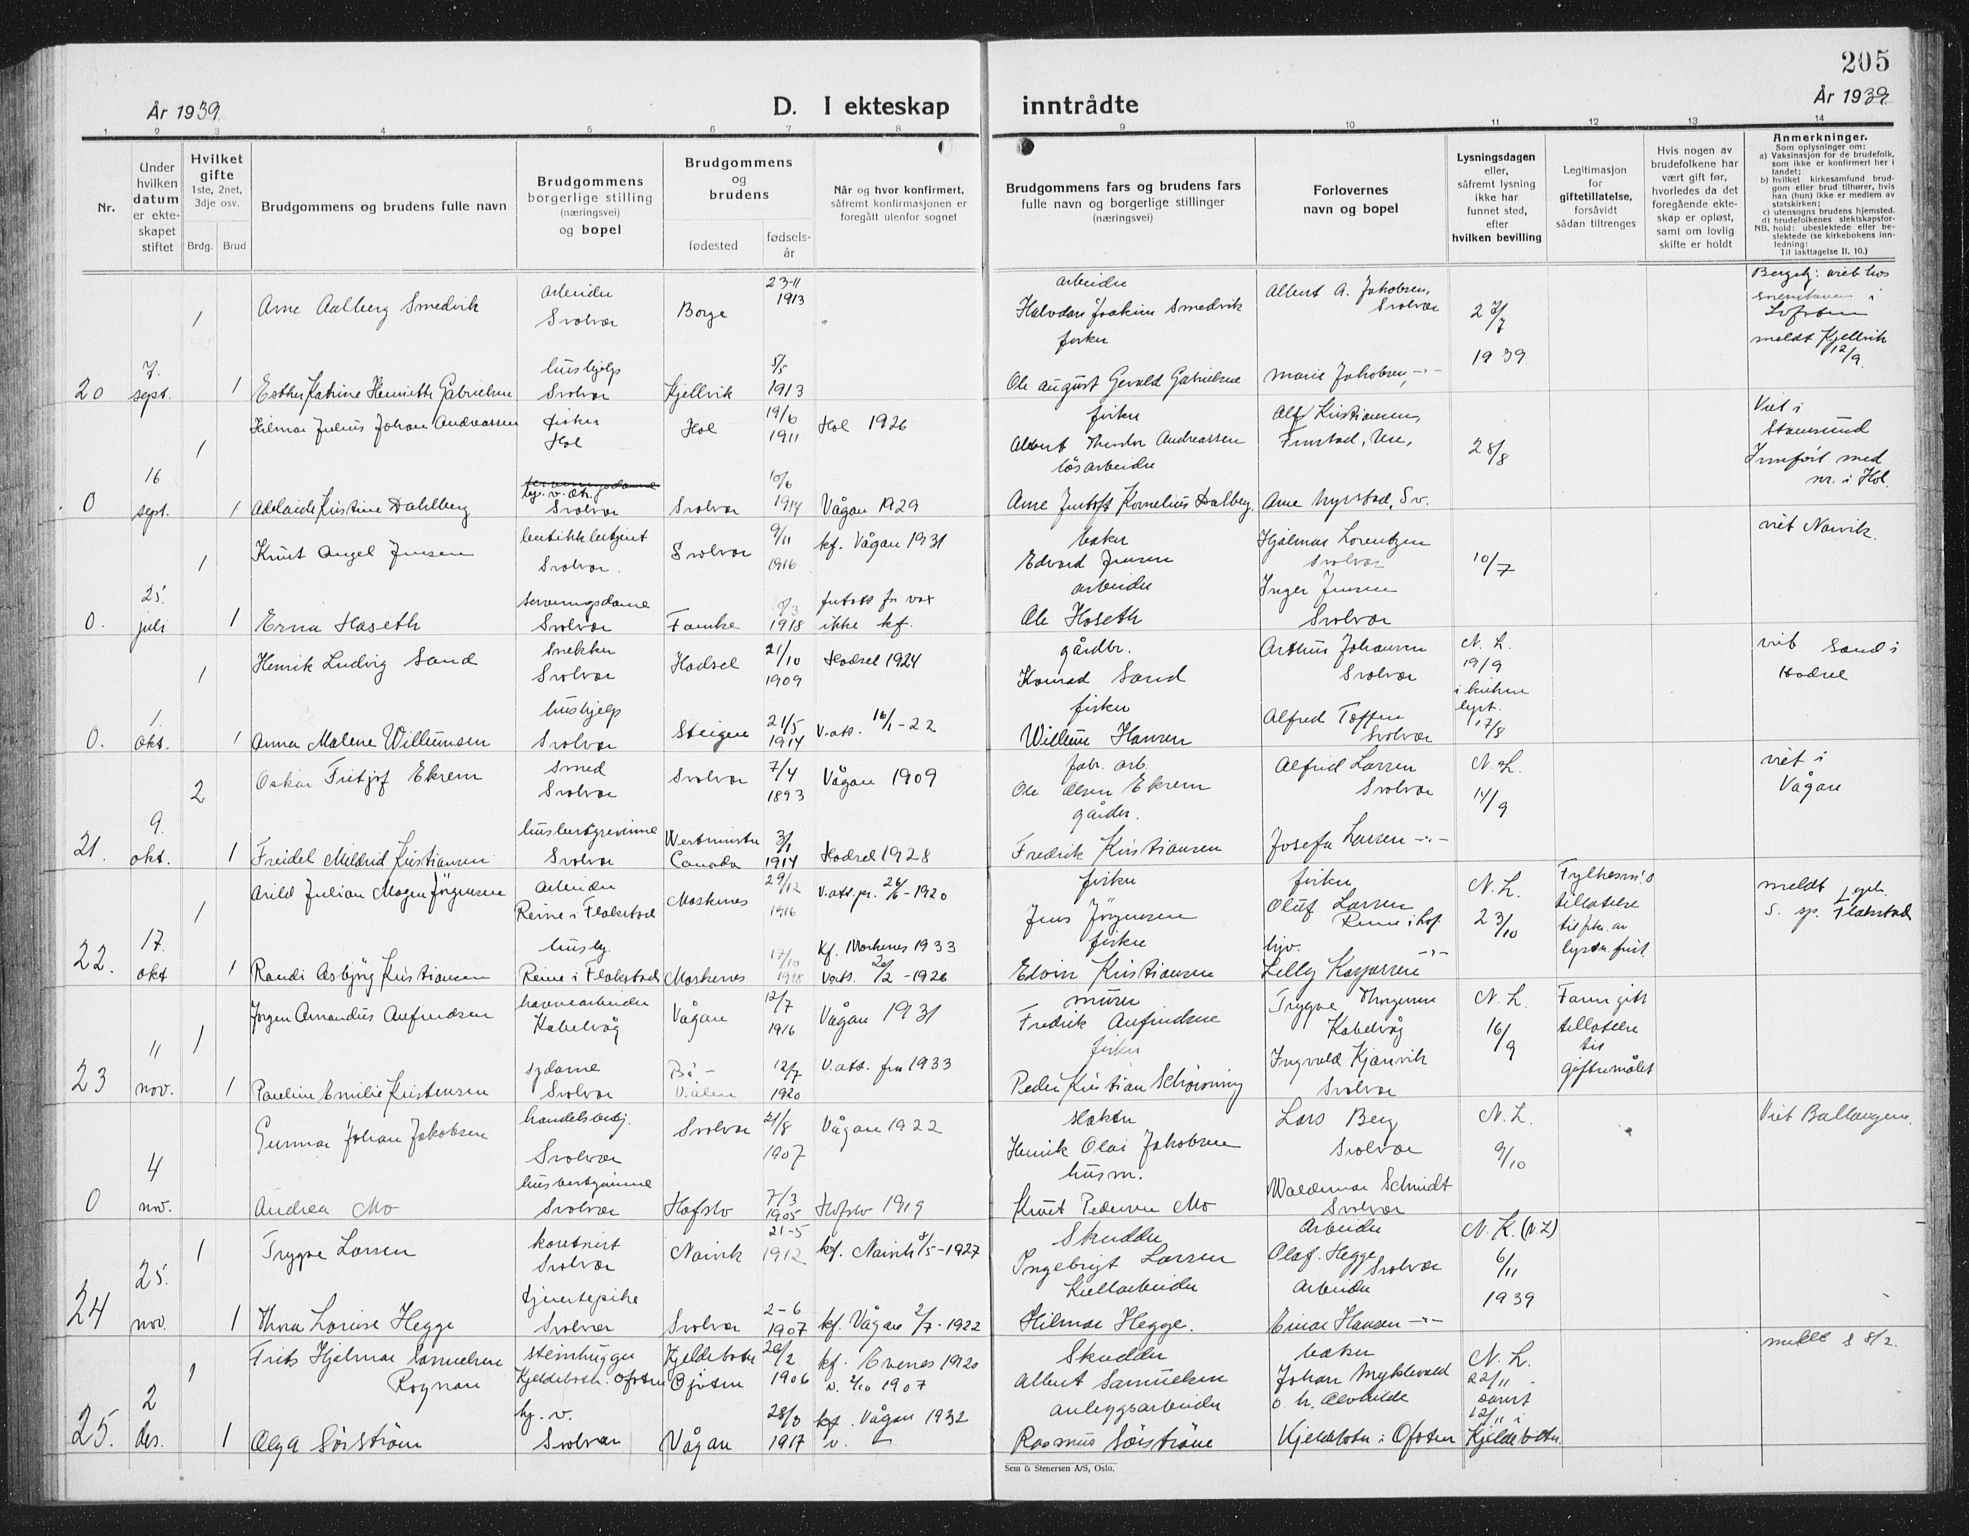 205
År 1939
D. I ekteskap inntrådte
År 1939
1 2 3 4 5 6 7 8 9 10 11 12 13 14
Nr.
Under
hvilken
datum
er ekte-
skapet
stiftet
Hvilket
gifte
1ste, 2net,
3dje osv.
Brdg. Brud
Brudgommens og brudens fulle navn
Brudgommens
borgerlige stilling
(næringsvei)
og bopel
Brudgommens
og
brudens
fødested
fødsels-
år
Når og hvor konfirmert,
såfremt konfirmasjonen er
foregått utenfor sognet
Brudgommens fars og brudens fars
fulle navn og borgerlige stillinger
(næringsvei)
Forlovernes
navn og bopel
Lysningsdagen
eller,
såfremt lysning
ikke har
funnet sted,
efter
hvilken bevilling
Legitimasjon
for
giftetillatelse,
forsåvidt
sådan tiltrenges
Hvis nogen av
brudefolkene har
vært gift før,
hvorledes da det
foregående ekte-
skap er opløst,
samt om lovlig
skifte er holdt
Anmerkninger.
Som oplysninger om:
a) Vaksinasjon for de brudefolk,
som ikke er konfirmert her i
landet;
b) hvilket kirkesamfund brud-
gom eller brud tilhører, hvis
han (hun) ikke er medlem av
statskirken;
c) utensogns brudens hjemsted.
d) brudefolkenes slektskapsfor-
NB. hold: ubeslektede eller be-
slektede (se kirkebokens inn-
ledning:
Til iakttagelse II. 10.)
1 Arne Aalberg Smedvik
arbeider
Svolvær
Borge
23-11
1913
arbeider
Halvdan Joakim Smedvik
Albert A. Jakobsen,
Svolvær
27/7
1939
meldt Kjellvik
12/9.
20
7.
sept.
1 Esther Katrine Henriette Gabrielsen
hushjelp
Svolvær
Kjellvik
5/5
1913
fisker
Ole August Gerald Gabrielsen
Marie Jakobsen, -"-
1 Hilmar Julius Johan Andreassen
fisker
Hol
Hol
19/6
1911
Hol 1926
fisker
Albert Theodor Andreassen
Alf Kristiansen
28/8
Viet i
Stamsund
Innført med
nr. i Hol.
0
16
sept.
1 Adelaide Kristine Dahlberg
Svolvær
Svolvær
10/6
1914
Vågan 1929
løsarbeider
Arne Justoft Kornelius Dalberg.
Arne Myrstad, Sv.
1 Knut Angel Jensen
butikkbetjent
Svolvær.
Svolvær
9/11
1916
kf. Vågan 1931
baker
Edvard Jensen
Hjalmar Lorentzen
Svolvær
10/7
viet Narvik.
0.
25.
juli
1 Erna Haseth
serveringsdame
Svolvær
1918
ikke kf.
arbeider
Ole Hoseth
Inger Jensen
Svolvær
1 Henrik Ludvig Sand
snekker
Svolvær
Hadsel
21/10
1909
Hadsel 1924
gårdbr.
Konrad Sand
Arthur Johansen
Svolvær
N. L.
19/9
viet Sand i
Hadsel
0.
1.
okt.
1 Anna Malene Willumsen
hushjelp
Svolvær
Steigen
21/5
1914
V.att. 16/1-22
fisker
Willum Hansen
Alfred Toften
Svolvær
17/8
2 Oskar Fritjof Ekrem
smed
Svolvær
Svolvær
7/4
1893
Vågan 1909
fabr. arb.
Ole Olsen Ekrem
Alfred Larsen
Svolvær
N. L.
14/9
viet i
Vågan
21.
9.
okt.
1 Freidel Meldrid Kristiansen
husbestyrerinne
Svolvær
Westminster
Canada
3/1
1914
Hadsel 1928
gårdbr.
Fredrik Kristiansen
Josefa Larsen -"-
1 Arild Julian Mogen Jørgensen
arbeider
Reine i Flakstad
Moskenes
29/12
1916
V.att.pr. 26/6-1920
fisker
Jens Jørgensen
fisker
Oluf Larsen
Reine i Lof.
N. L.
23/10
Fylkesm's
tillatelse
meldt
22.
17.
okt
1 Randi Asbjørg Kristiansen
husbj.
Reine i Flakstad
Moskenes
17/10
1918
kf. Moskenes 1933
V.att. 20/2-1926
fisker
Edvin Kristiansen
Lilly Kaspersen -"-
1 Jørgen Amandus Anfindsen
havnearbeider
Kabelvåg
Vågan
12/7
1916
Vågan 1931
murer
Fredrik Anfindsen
Trygve Thorgersen
Kabelvåg
N. L.
16/9
Faren gitt
tillatelse
til
giftermålet
23
11
nov.
1 Pauline Emilie Kristensen
sydame
Svolvær
12/7
1920
V.att. fra 1933
fisker
Peder Kristian Schønning
Ingvald Kjanvik
Svolvær
Gunnar Johan Jakobsen
handelsbetj.
Svolvær
Svolvær
21/8
1907
Vågan 1922
slakter
Henrik Olai Jakobsen
Lars Berg
Svolvær
N. L.
9/10
Viet Ballangen.
0
4
nov.
Andrea Mo
husbestyrerinne
Svolvær
Hafslo
7/3
1905
Hafslo 1919
husm.
Knut Pedersen Mo
Waldemar Schmidt
Svolvær
1 Trygve Larsen
Svolvær
Narvik
21-5
1912
kf. Narvik 8/5-1927
Skredder
Ingebrigt Larsen
Arbeider
Olaf. Hegge
Svolvær
N. K. (N.L)
6/11
1939
24
25.
nov.
1 Thora Lovise Hegge
tjenestepike
Svolvær
Svolvær
2-6
1907
kf. Vågan 2/7-1922
Kullarbeider
Hilmar Hegge.
Arbeider
Einar Hansen -"-
1 Frits Hjelmar Samuelsen
Rognan
steinhugger
Kjeldebotn. Ofoten
Kjeldebotn
Ofoten
20/2
1906
kf. Evenes 1920
v. 2/10 1907
Skredder
Albert Samuelsen
baker
Johan Myklevold
N. L.
22/11
meldt S 8/2.
25.
2
des.
1 Olga Sørstrøm
hj. v.
Svolvær
Vågan
28/3
1917
kf. Vågan 1932
v. -
anleggsarbeider
Rasmus Sørstrøm
Kjeldebotn i Ofoten
12/11 i
Kjeldebotn.
Sem & Stenersen A/S, Oslo.